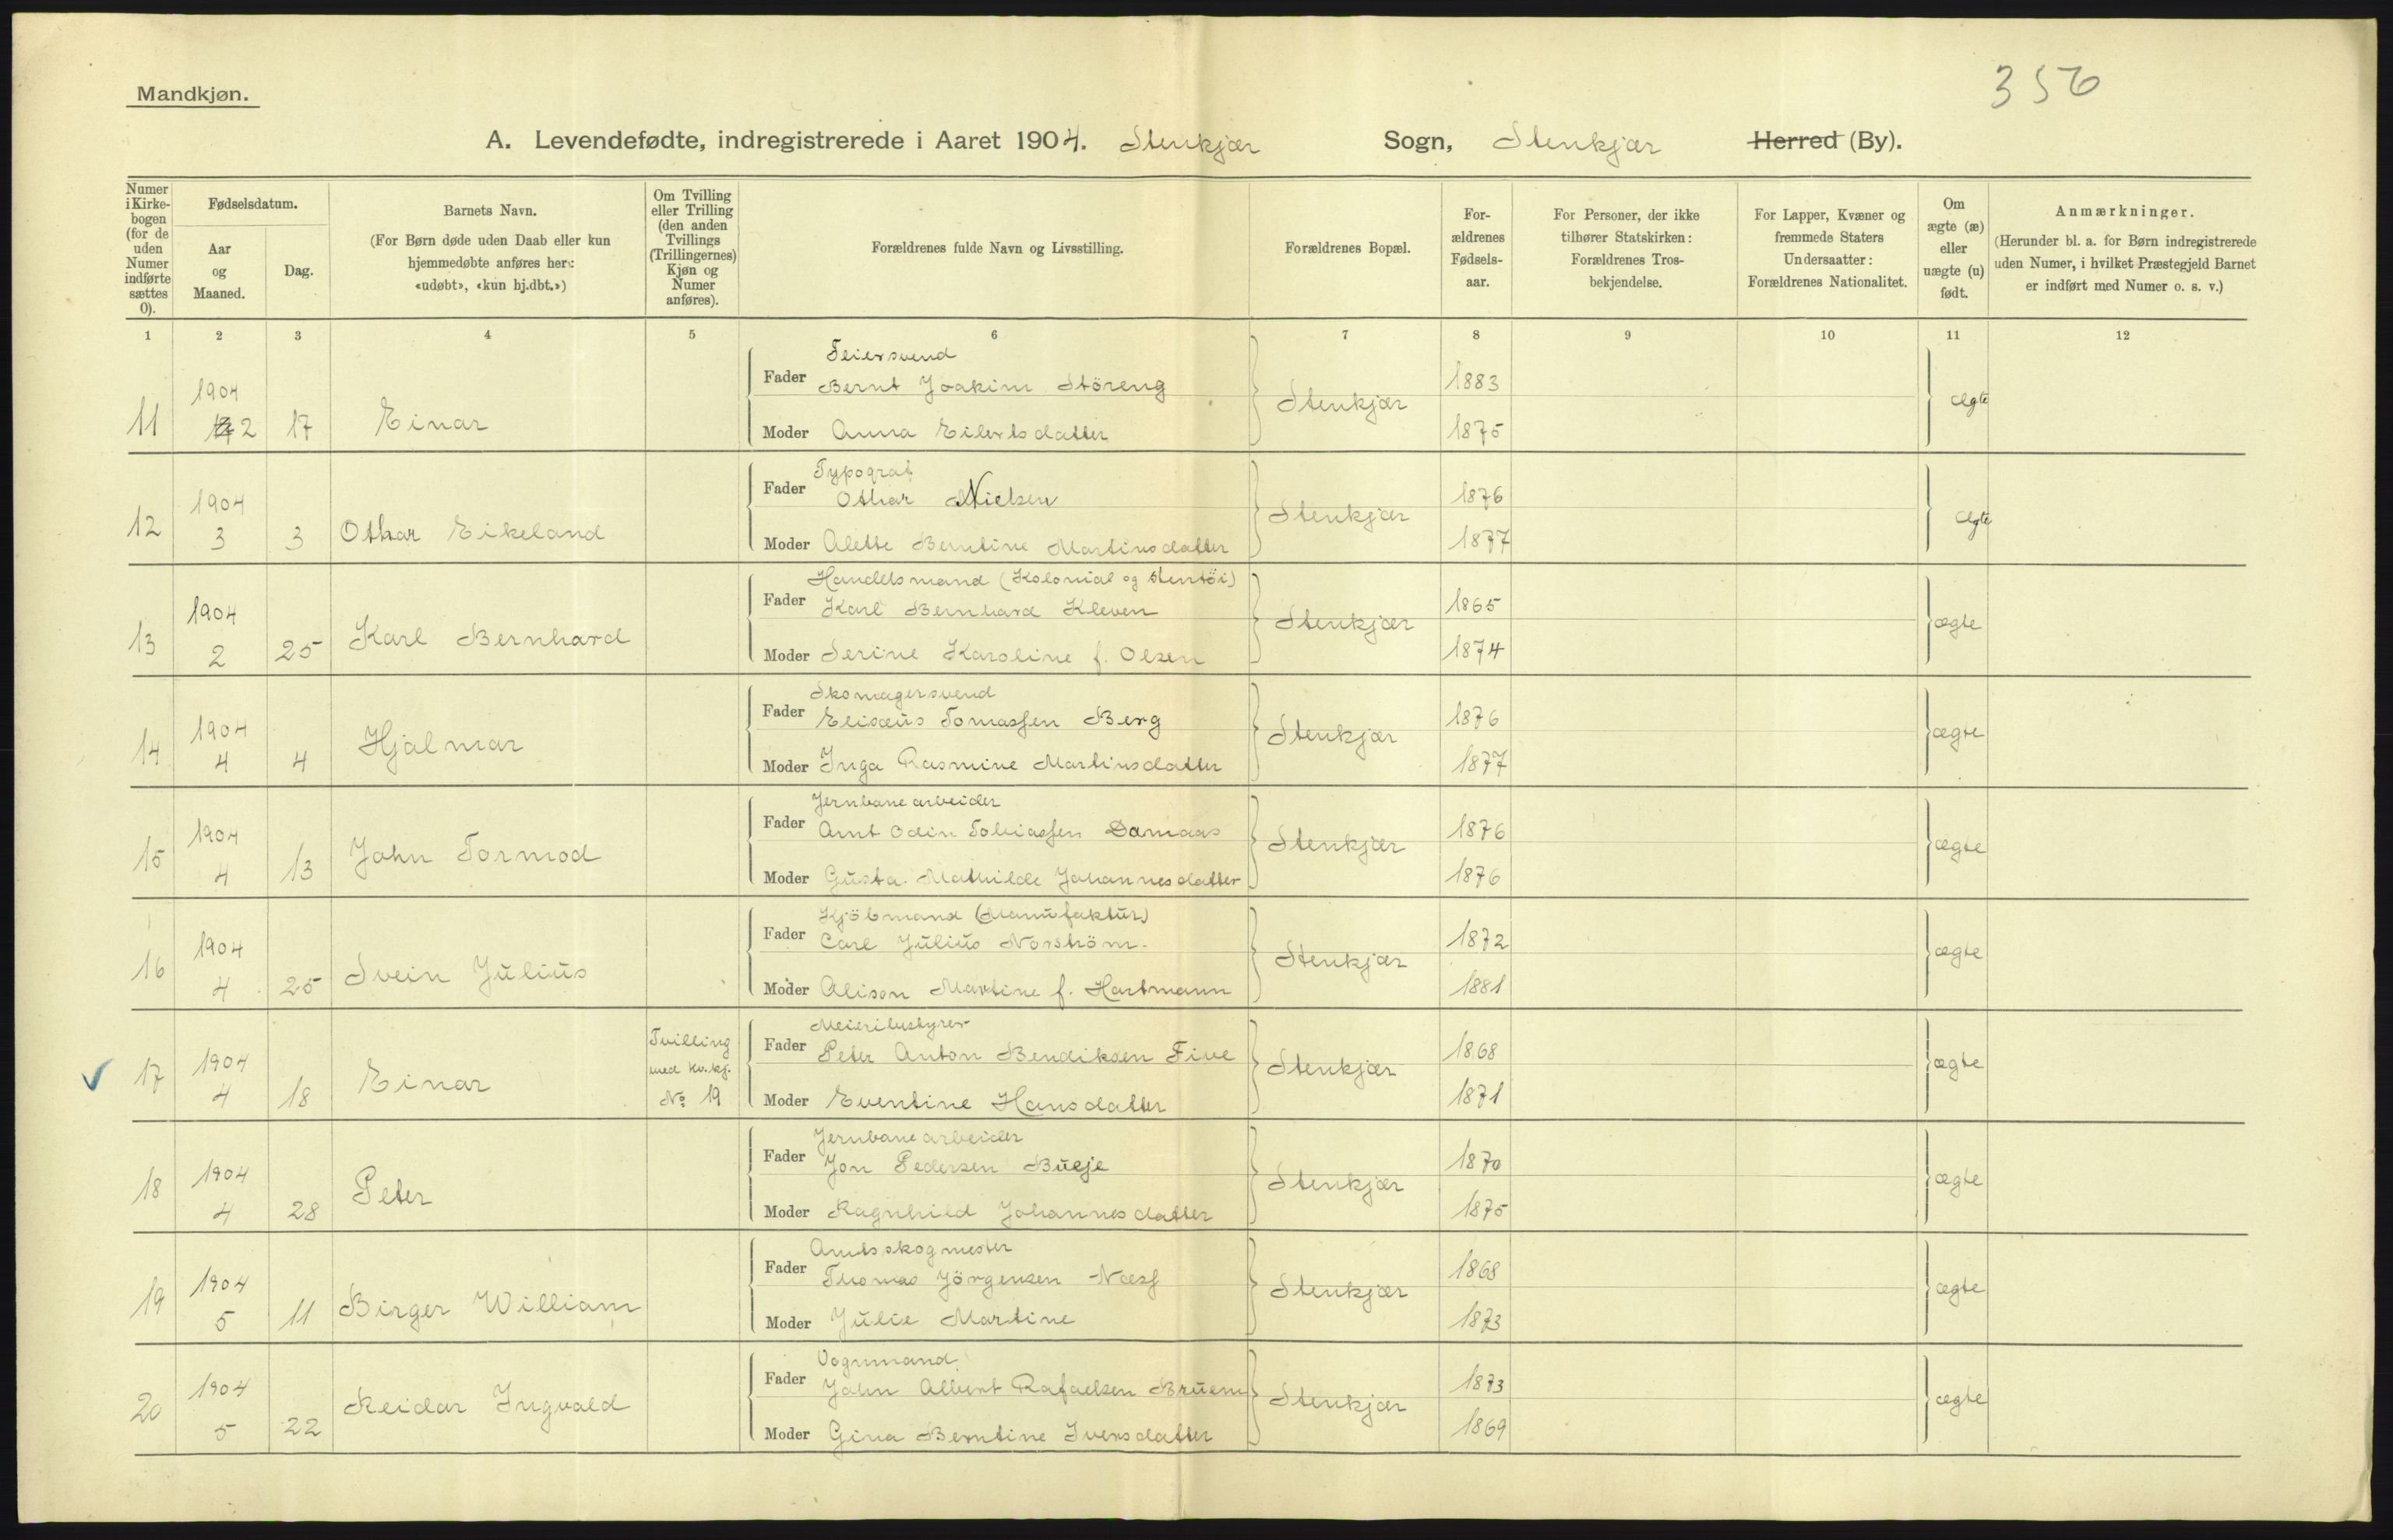 Mandkjøn.
356
A. Levendefødte, indregistrerede i Aaret 1904. Stenkjær Sogn, Stenkjær Herred (By).
Numer i Kirke-bogen (for de uden Numer indførte sættes 0).
Fødselsdatum.
Aar og Maaned.
Dag.
Barnets Navn.
(For Børn døde uden Daab eller kun hjemmedøbte anføres her: «udøbt», «kun hj.dbt.»)
Om Tvilling eller Trilling (den anden Tvillings (Trillingernes) Kjøn og Numer anføres).
Forældrenes fulde Navn og Livsstilling.
Forældrenes Bopæl.
For-ældrenes Fødsels-aar.
For Personer, der ikke tilhører Statskirken: Forældrenes Tros-bekjendelse.
For Lapper, Kvæner og fremmede Staters Undersaatter: Forældrenes Nationalitet.
Om ægte (æ) eller uægte (u) født.
Anmærkninger.
(Herunder bl. a. for Børn indregistrerede uden Numer, i hvilket Præstegjeld Barnet er indført med Numer o. s. v.)
1 2 3 4 5 6 7 8 9 10 11 12
11 1904 2 17 Einar
Feiersvend
Fader Bernt Joakim Støreng Stenkjær 1883 ægte
Moder Anna Eilertsdatter 1875
12 1904 3 3 Othar Eikeland
Typograf
Fader Othar Nielsen Stenkjær 1876 ægte
Moder Alette Berntine Martinsdatter 1877
13 1904 2 25 Karl Bernhard
Handelsmand (Kolonial og Stentöi)
Fader Karl Bernhard Kleven Stenkjær 1865 ægte
Moder Serine Karoline f. Olsen 1874
14 1904 4 4 Hjalmar
Skomagersvend
Fader Elisæus Tomassen Berg Stenkjær 1876 ægte
Moder Inga Rasmine Martinsdatter 1877
15 1904 4 13 John Tormod
Jernbanearbeider
Fader Arnt Odin Tobiassen Damaas Stenkjær 1876 ægte
Moder Gusta Mathilde Johannesdatter 1876
16 1904 4 25 Svein Julius
Kjöbmand (Manufaktur)
Fader Carl Julius Norström. Stenkjær 1872 ægte
Moder Alison Martine f. Hartmann 1881
17 1904 4 18 Einar Tvilling med kv.kj. No 19
Meieribestyrer
Fader Peter Anton Bendiksen Five Stenkjær 1868 ægte
Moder Eventine Hansdatter 1871
18 1904 4 28 Peter
Jernbanearbeider
Fader Jon Pedersen Bueje Stenkjær 1870 ægte
Moder Ragnhild Johannesdatter 1875
19 1904 5 11 Birger William
Amtsskogmester
Fader Thomas Jörgensen Næss Stenkjær 1868 ægte
Moder Julie Martine 1873
20 1904 5 22 Reidar Ingvald
Vognmand
Fader John Albert Rafaelsen Bruem Stenkjær 1873 ægte
Moder Gina Berntine Iversdatter 1869